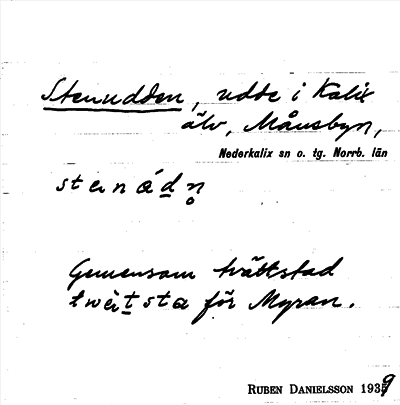 Stenudden, udde i Kalix
älv, Månsbyn,
Nederkalix sn o. tg. Norrb. län
stenádn̥
Gemensam tvättstad
twèt sta för Myran.
RUBEN DANIELSSON 1939